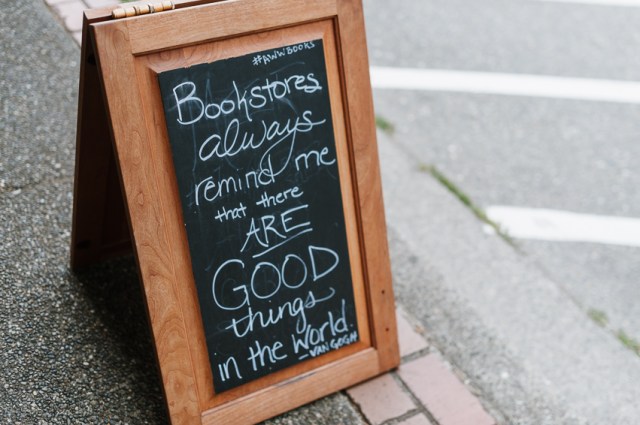 #AWWBOOKS
Bookstores
always
remind me
that there
ARE
GOOD
things
in the world.
-VAN GOGH